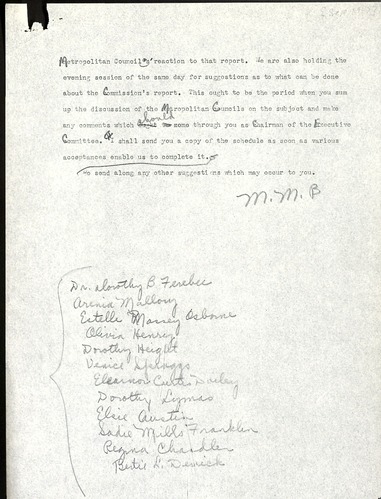 Metropolitan Councils' reaction to that report. We are also holding the
evening session of the same day for suggestions as to what can be done
about the Commission's report. This ought to be the period when you sum
up the discussion of the Metropolitan Councils on the subject and make
any comments which should come through you as Chairman of the Executive
Committee. I shall send you a copy of the schedule as soon as various
acceptances enable us to complete it.
We send along any other suggestions which may occur to you.
M. M. B
Dr. Dorothy B Ferebee
Arenia Mallory
Estelle Massey Osborne
Olivia Henry
Dorothy Height
Venice Spraggs
Eleanor Curtis Dailey
Dorothy
Elsie Austin
Sadie Mills Franklin
Regina Chandler
Bertie L. Derrick